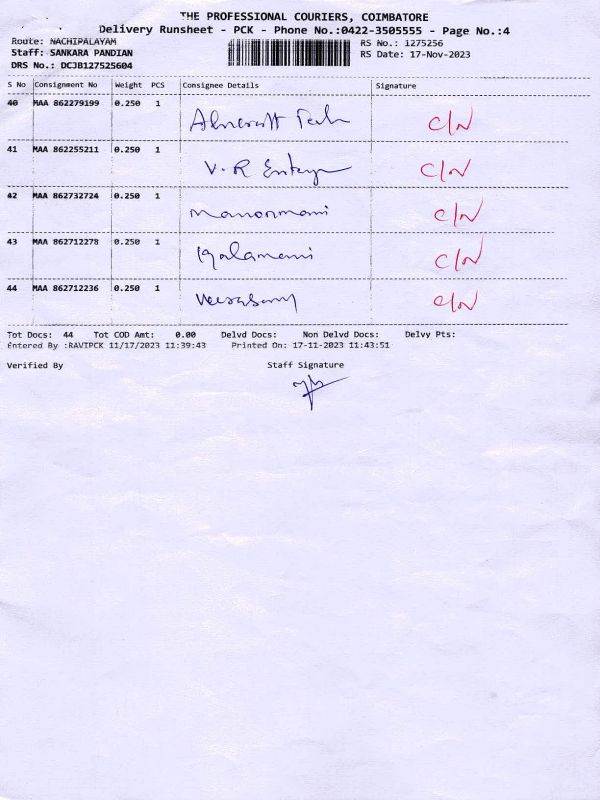 THE PROFESSIONAL COURIERS, COIMBATORE
Delivery Runsheet - PCK - Phone No.:0422-3505555 - Page No.:4
Route: NACHIPALAYAM RS No.: 1275256
Staff: SANKARA PANDIAN RS Date: 17-Nov-2023
DRS No.: DCJB127525604
S No Consignment No Weight PCS Consignee Details Signature
40 MAA 862279199 0.250 1 Tech C/N
41 MAA 862255211 0.250 1 V.R C/N
42 MAA 862732724 0.250 1 Manonmani C/N
43 MAA 862712278 0.250 1 C/N
44 MAA 862712236 0.250 1 Veerasamy C/N
Tot Docs: 44 Tot COD Amt: 0.00 Delvd Docs: Non Delvd Docs: Delvy Pts:
Entered By :RAVIPCK 11/17/2023 11:39:43 Printed On: 17-11-2023 11:43:51
Verified By Staff Signature